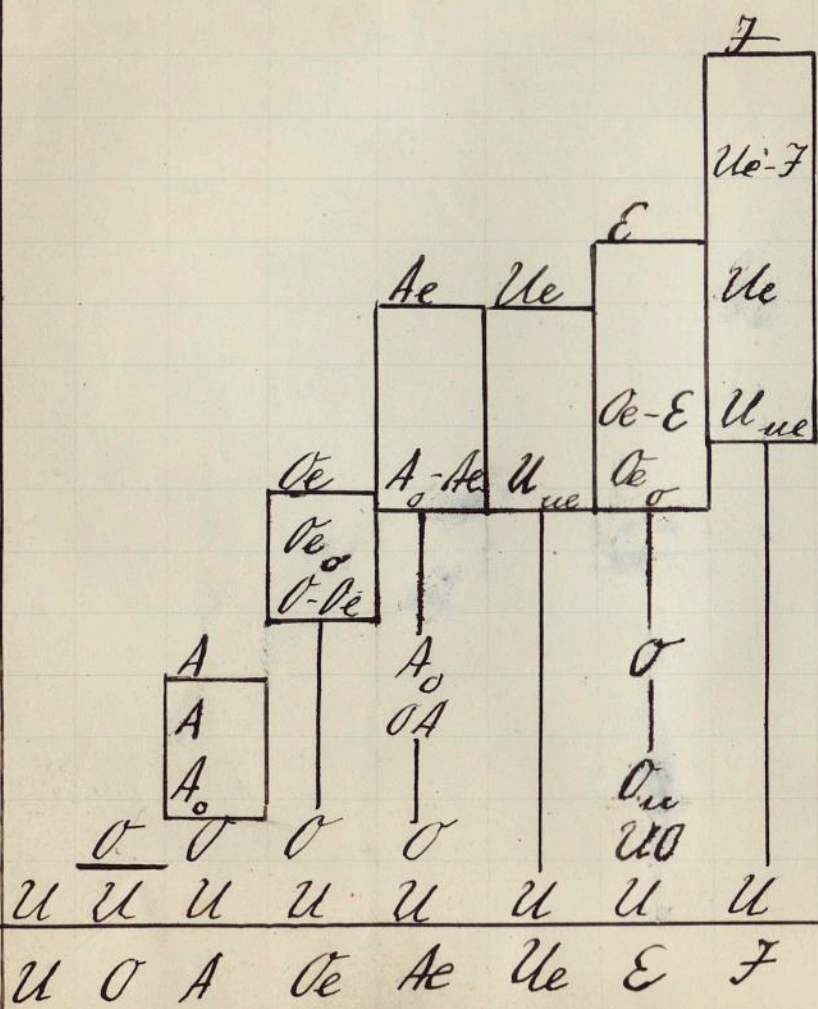 J
Ue-J
E
Ae Ue Ue
Oe-E Uue
Oe Ao-Ae Uue Oeo
Oeo
O-Oe
A Ao O
A OA
Ao Ou
O O O O UO
U U U U U U U U
U O A Oe Ae Ue E J